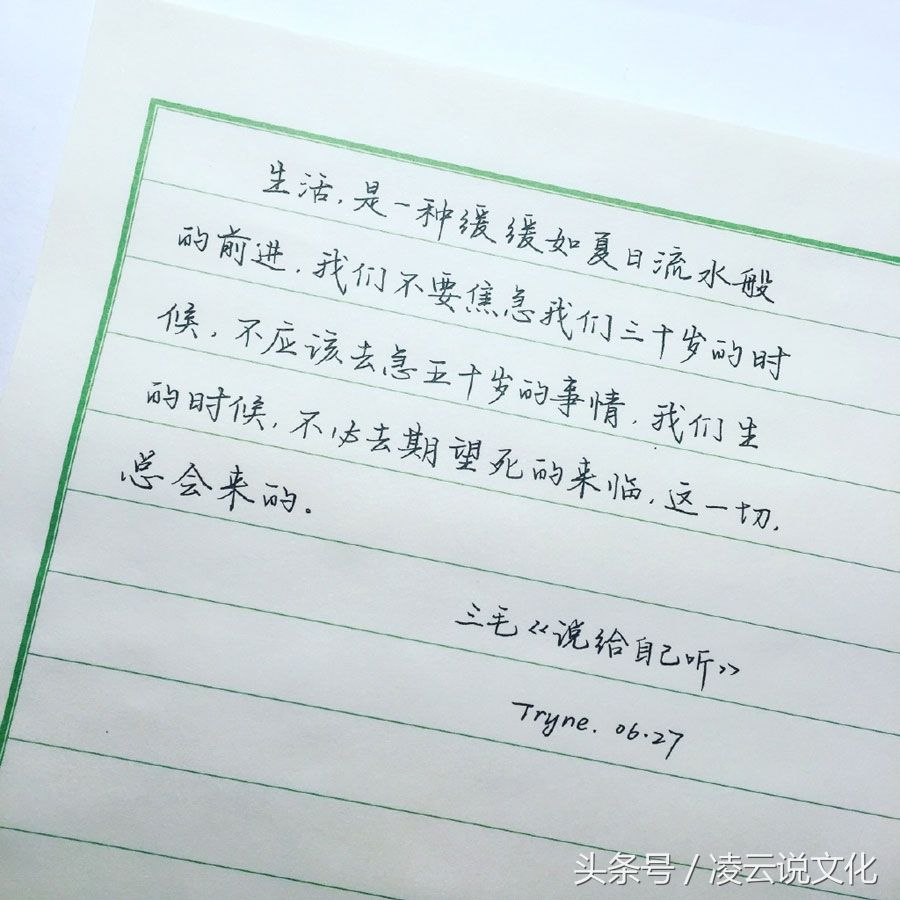 生活，是一种缓缓如夏日流水般
的前进，我们不要焦急我们三十岁的时
候，不应该去急五十岁的事情，我们生
的时候，不必去期望死的来临，这一切，
总会来的。
三毛《说给自己听》
Tryne. 06.27
头条号 / 凌云说文化